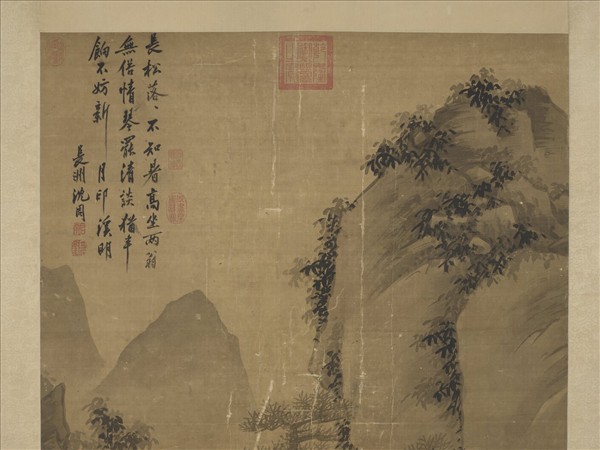 長松落〻不知暑高坐兩翁
無俗情琴罷清談猶半
餉不妨新月印溪明
長洲沈周